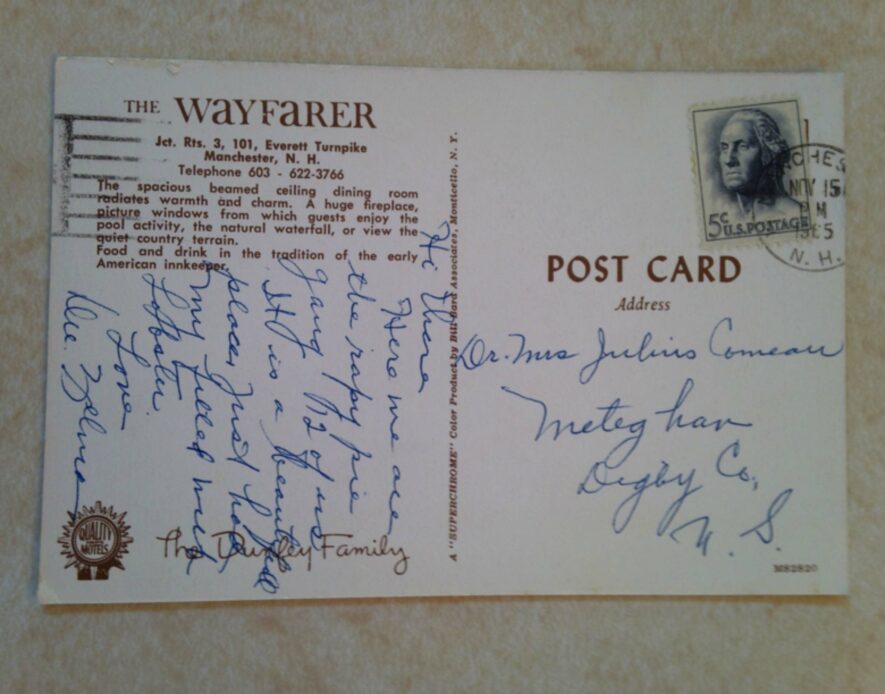 THE WAYFARER
Jct. Rts. 3, 101, Everett Turnpike
Manchester, N. H.
Telephone 603 - 622-3766
The spacious beamed ceiling dining room
radiates warmth and charm. A huge fireplace,
picture windows from which guests enjoy the
pool activity, the natural waterfall, or view the
quiet country terrain.
Food and drink in the tradition of the early
American innkeeper.
Hi There
Here we are
the rapy pie
gang 12 of us
It is a beautiful
place, Just had
my filled with
Lobster.
Love
Zelma
QUALITY
MOTELS
The Dunfey Family
A "SUPERCHROME" Color Product by Bill Bard Associates, Monticello, N. Y.
5c U.S. POSTAGE
CHES
NOV 15
PM
1965
N. H.
POST CARD
Address
Dr. Mrs Julius Comeau
Meteghan
Digby Co.,
N. S.
MS2820